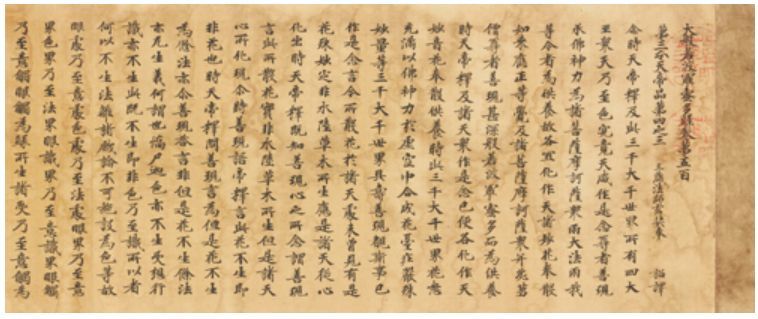 大般若波羅蜜多經卷第五百
第三分天帝品第四之三 三藏法師玄奘奉 詔譯
尒時天帝釋及此三千大千世界所有四大
王衆天乃至色究竟天咸作是念尊者善現
承佛神力為諸菩薩摩訶薩衆雨大法雨我
等今者為供養故各宜化作天諸妙花奉散
如來應正等覺及諸菩薩摩訶薩衆并苾芻
僧尊者善現甚深般若波羅蜜多而為供養
時天帝釋及諸天衆作是念已便各化作天
妙音花奉散供養時此三千大千世界花悉
充滿以佛神力於虛空中合成花臺莊嚴殊
妙量等三千大千世界具壽善現覩斯事已
作是念言今所散花於諸天處未曾見有是
花殊妙定非水陸草木所生應是諸天從心
化出時天帝釋既知善現心之所念謂善現
言此所散花實非水陸草木所生但是諸天
心所化現尒時善現語帝釋言此花不生即
非花也時天帝釋問善現言為但是花不生
為餘法亦尒善現答言非但是花不生餘法
亦无生義何謂也憍尸迦色亦不生受想行
識亦不生此既不生即非色乃至識所以者
何以不生法離諸戲論不可施設為色等故
眼處乃至意處色處乃至法處眼界乃至意
界色界乃至法界眼識界乃至意識界眼觸
乃至意觸眼觸為緣所生諸受乃至意觸為